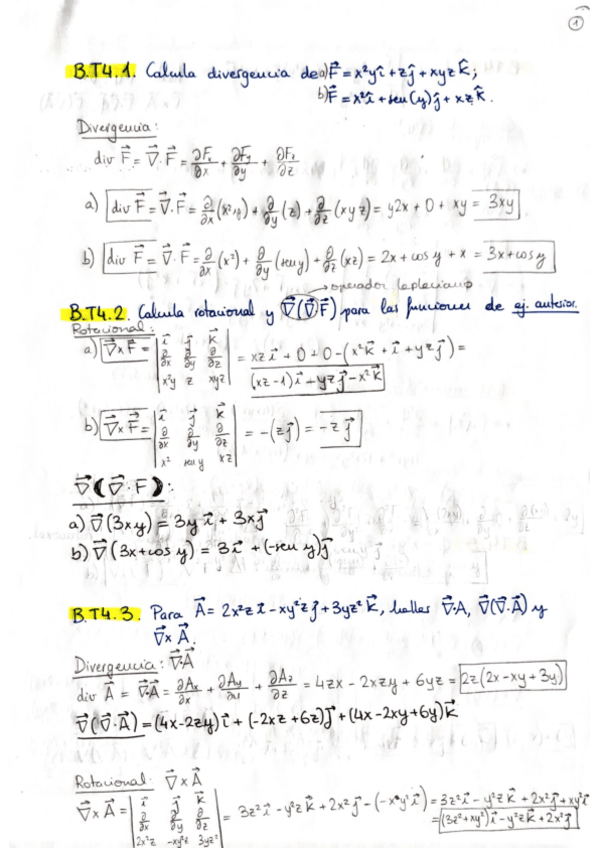 1
B.T4.1. Calcula divergencia de a) F⃗ = x²yî + zĵ + xyz k̂;
b) F⃗ = x²î + sen(y)ĵ + xz k̂.
Divergencia:
div F⃗ = ∇⃗·F⃗ = ∂Fx/∂x + ∂Fy/∂y + ∂Fz/∂z
a) div F⃗ = ∇⃗·F⃗ = ∂/∂x (x²y) + ∂/∂y (z) + ∂/∂z (xyz) = y2x + 0 + xy = 3xy
b) div F⃗ = ∇⃗·F⃗ = ∂/∂x (x²) + ∂/∂y (sen y) + ∂/∂z (xz) = 2x + cos y + x = 3x + cos y
→ operador laplaciano
B.T4.2. Calcula rotacional y ∇⃗(∇⃗F⃗) para las funciones de ej. anterior.
Rotacional:
a) ∇⃗×F⃗ = | i⃗ j⃗ k⃗ |
| ∂/∂x ∂/∂y ∂/∂z | = xz i⃗ + 0 + 0 - (x²k⃗ + i⃗ + yz j⃗) =
| x²y z xyz | (xz-1)i⃗ - yz j⃗ - x² k⃗
b) ∇⃗×F⃗ = | i⃗ j⃗ k⃗ |
| ∂/∂x ∂/∂y ∂/∂z | = -(z j⃗) = -z j⃗
| x² sen y xz |
∇⃗(∇⃗·F):
a) ∇⃗(3xy) = 3y i⃗ + 3x j⃗
b) ∇⃗(3x+cos y) = 3 i⃗ + (-sen y) j⃗
B.T4.3. Para A⃗ = 2x²z i⃗ - xy²z j⃗ + 3yz² k⃗, hallar ∇⃗·A, ∇⃗(∇⃗·A⃗) y
∇⃗×A⃗.
Divergencia: ∇⃗·A⃗
div A⃗ = ∇⃗·A⃗ = ∂Ax/∂x + ∂Ay/∂y + ∂Az/∂z = 4zx - 2xzy + 6yz = 2z(2x - xy + 3y)
∇⃗(∇⃗·A⃗) = (4x-2zy) i⃗ + (-2xz + 6z) j⃗ + (4x-2xy+6y) k⃗
Rotacional: ∇⃗×A⃗
∇⃗×A⃗ = | i⃗ j⃗ k⃗ |
| ∂/∂x ∂/∂y ∂/∂z | = 3z² i⃗ - y²z k⃗ + 2x² j⃗ - (-xy² i⃗) = 3z² i⃗ - y²z k⃗ + 2x² j⃗ + xy² i⃗
| 2x²z -xy²z 3yz² | = (3z²+xy²) i⃗ - y²z k⃗ + 2x² j⃗